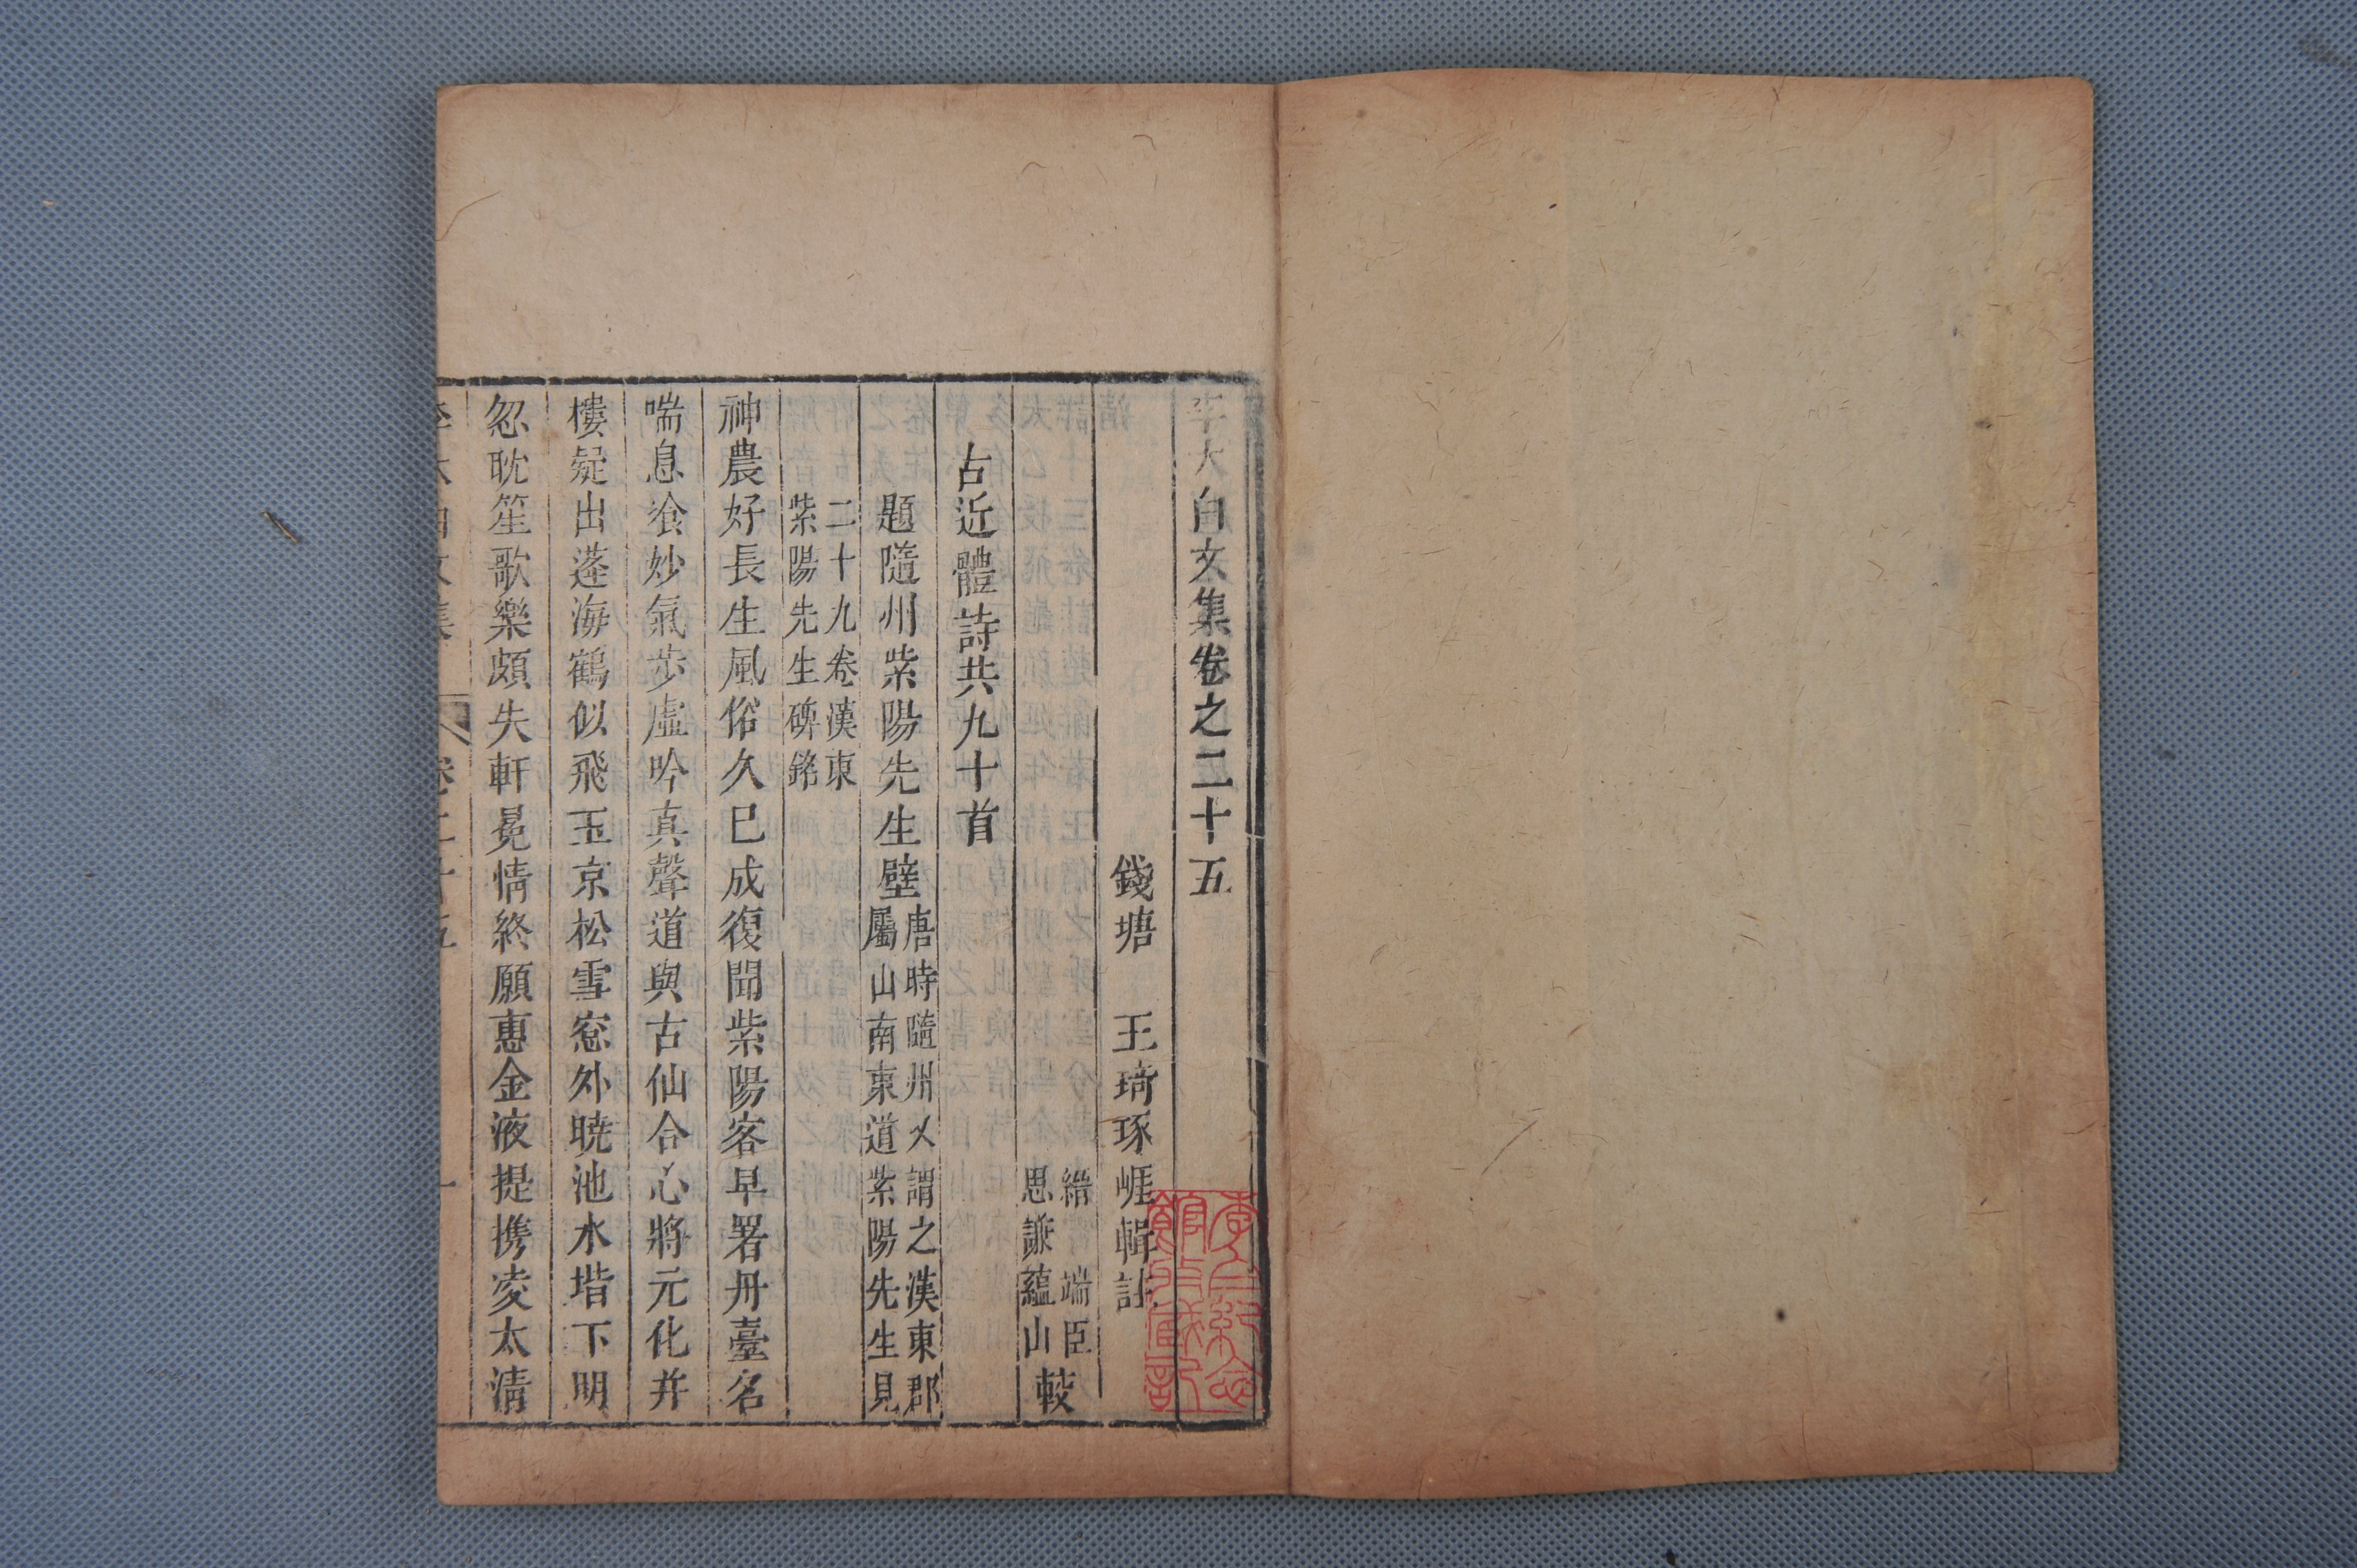 李太白文集卷之二十五
錢塘 王琦琢崖輯註
縉 端臣
思謙蘊山
較
古近體詩共九十首
題隨州紫陽先生壁
唐時隨州又謂之漢東郡
屬山南東道紫陽先生見
二十九卷漢東
紫陽先生碑銘
神農好長生風俗久已成復聞紫陽客早署丹臺名
喘息飡妙氣步虛吟真聲道與古仙合心將元化并
樓疑出蓬海鶴似飛玉京松雪窓外曉池水堦下明
忽耽笙歌樂頗失軒冕情終願惠金液提携凌太清
李太白文集 卷二十五 一